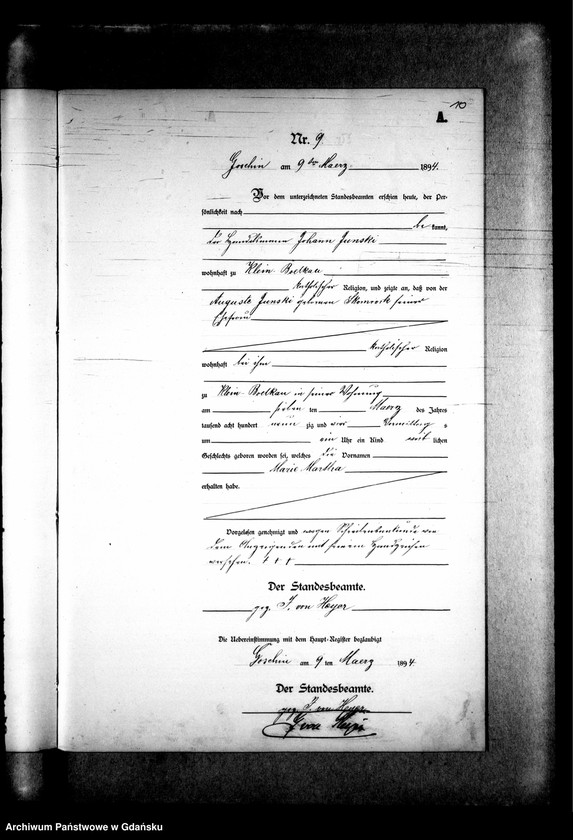 10
A.
Nr. 9
Goschin am 9ten Maerz 1894.
Vor dem unterzeichneten Standesbeamten erschien heute, der Per-
sönlichkeit nach
be kannt,
der Johann Junski
wohnhaft zu Klein Boelkau
katholischer Religion, und zeigte an, daß von der
Auguste Junski geborenen seiner
Ehefrau
katholischer Religion
wohnhaft bei ihm
zu Klein Boelkau in seiner Wohnung
am sieben ten Maerz des Jahres
tausend acht hundert neun zig und vier Vormittag s
um ein Uhr ein Kind weib lichen
Geschlechts geboren worden sei, welches die Vornamen
Marie Martha
erhalten habe.
Vorgelesen, genehmigt und wegen Schreibensunkunde von
dem Anzeigenden mit seinem Handzeichen
versehen. + + +
Der Standesbeamte.
gez. J. von Heyer
Die Uebereinstimmung mit dem Haupt-Register beglaubigt
Goschin am 9 ten Maerz 1894
Der Standesbeamte.
gez. J. von Heyer
Archiwum Państwowe w Gdańsku